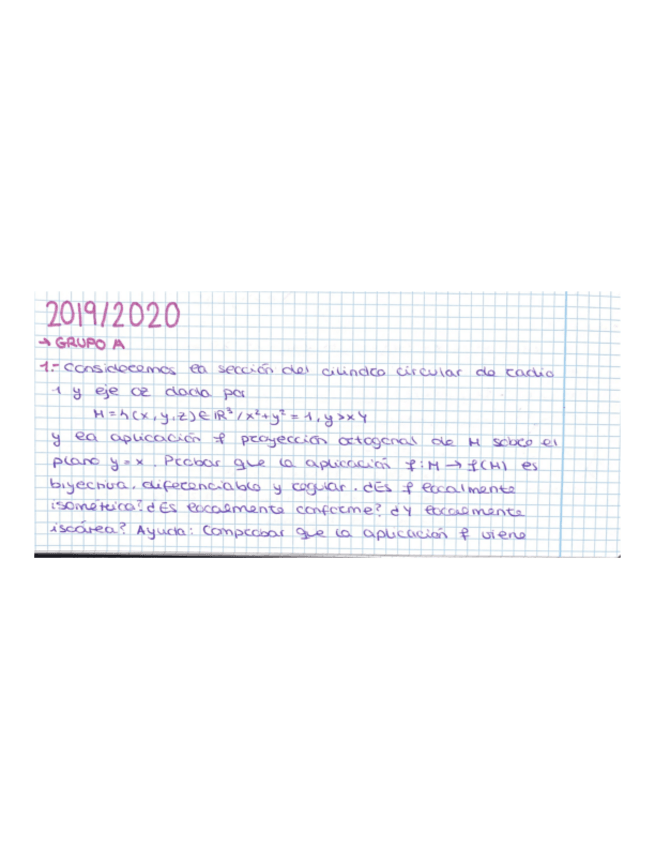 2019/2020
→ GRUPO A
1.- Consideremos la sección del cilindro circular de radio
1 y eje oz dada por
M = {(x, y, z) ∈ ℝ³ / x² + y² = 1, y > x}
y la aplicación f proyección ortogonal de M sobre el
plano y = x. Probar que la aplicación f: M → f(M) es
biyectiva, diferenciable y regular. ¿Es f localmente
isométrica? ¿Es localmente conforme? ¿Y localmente
isoárea? Ayuda: Comprobar que la aplicación f viene